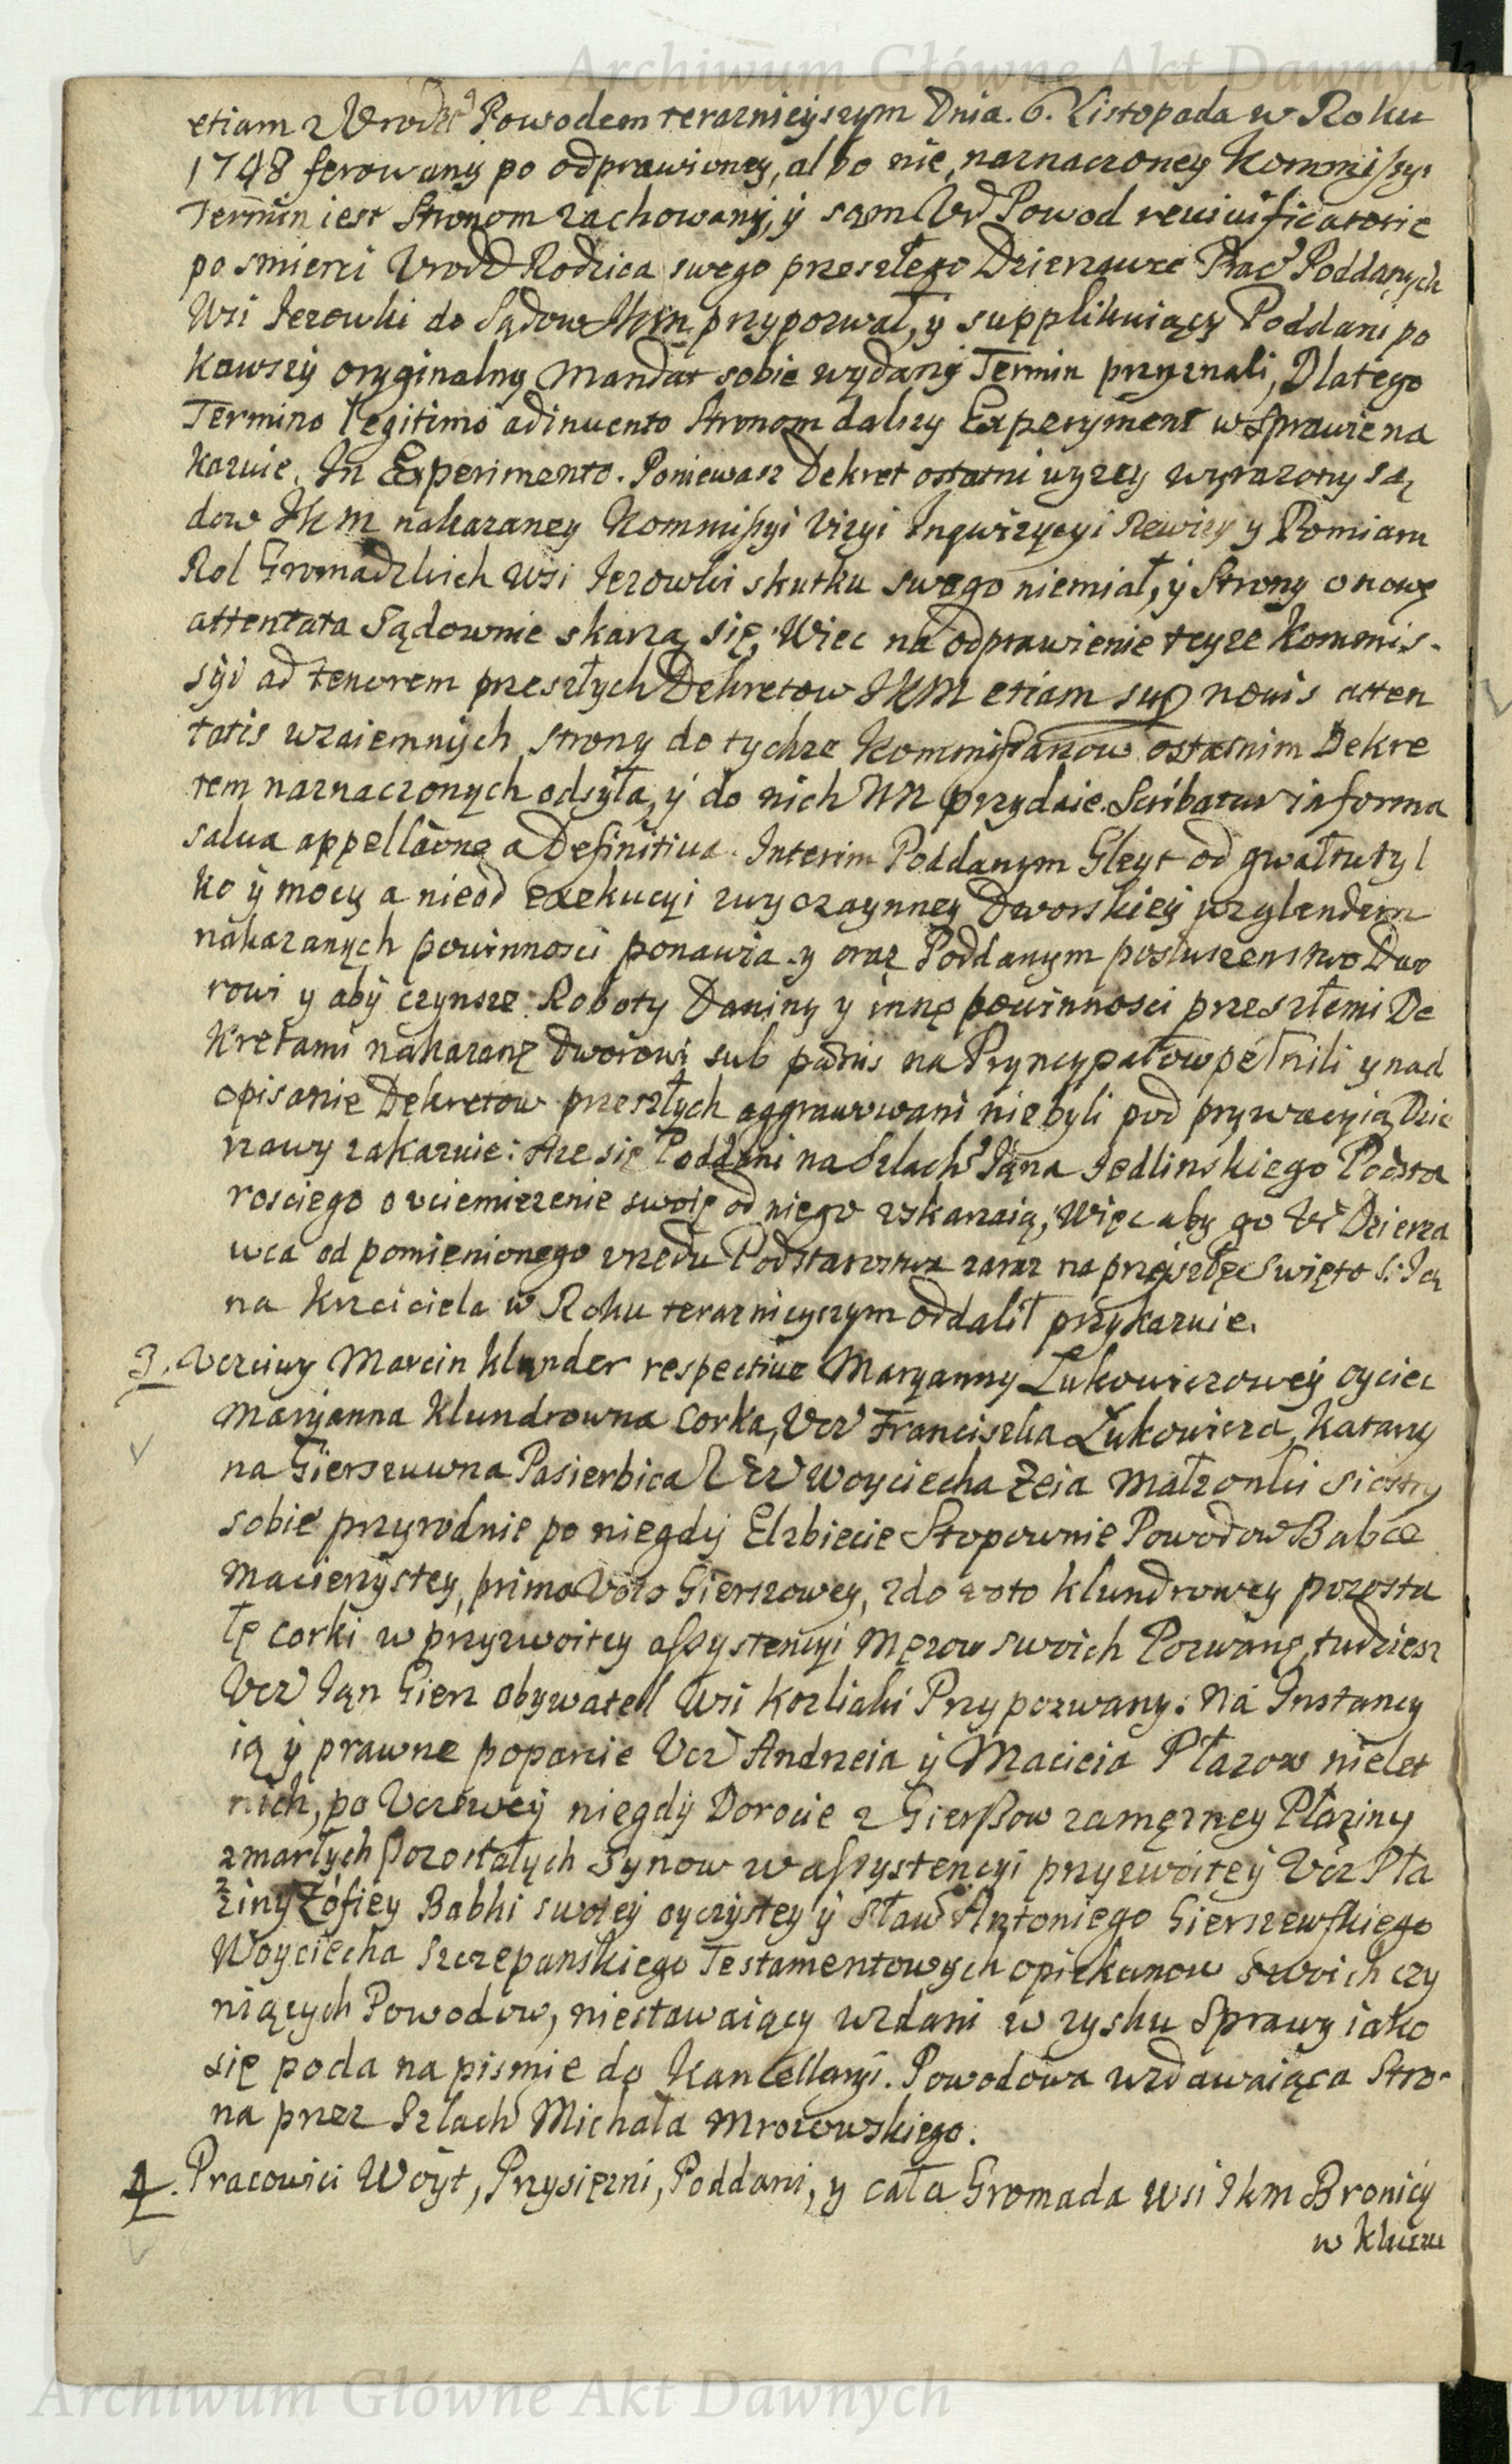 Archiwum Główne Akt Dawnych
etiam z Urodz Powodem teraznieyszym Dnia. 6. Listopada w Roku
1748 ferowany po odprawioney, albo nie, naznaczoney Kommissyi
Termin iest Stronom zachowany, y sam Ur Powod reuiuificatorie
po smierci Urodz Rodzica swego przeszłego Dzierzawce Prac Poddanych
Wsi Jezowki do Sądow JKM przypozwał, y supplikuiący Poddani po
kawszy oryginalny Mandat sobie wydany Termin przyznali, Dlatego
Termino legitimo adinuento Stronom dalszy Experyment w Sprawie na
kazuie. In Experimento. Poniewasz Dekret ostatni wyzey wyrazony Są
dow JKM nakazaney Kommissyi Vizyi Inqwizycyi Rewizy y Pomiaru
Rol Gromadzkich Wsi Jezowki skutku swego niemiał, y Strony o nowe
attentata Sądownie skarzą się, Wiec na odprawienie teyze Kommis-
syi ad tenorem przeszłych Dekretow JKM etiam sup nouis atten
tatis wzaiemnych strony do tychze Kommissarzow ostatnim Dekre
tem naznaczonych odsyła, y do nich WW przydaie. Scribatur in forma
salua appellaone a Definitiua. Interim Poddanym Gleyt od gwałtu tyl
ko y mocy a nieod exekucyi zwyczaynney Dworskiey wzglendem
nakazanych powinnosci ponawia. y oraz Poddanym posłuszenstwo Dwo
rowi y aby czynsze Roboty Daniny y inne powinnosci przeszłemi De
kretami nakazane Dworowi sub paenis na Pryncypałow pełnili y nad
opisanie Dekretow przeszłych aggrawowani niebyli pod prywacyią Dzie
rzawy zakazuie: Aze się Poddani na Szlach Jana Jedlinskiego Podsta
rosciego o vciemiezenie swoie od niego vskarzaią, Więc aby go Ur Dzierza
wca od pomienionego vrzedu Podstarostwa zaraz na przyszłe Swięto S: Ja
na Krzciciela w Roku teraznieyszym oddalił przykazuie.
3. Vczciwy Marcin Klunder respective Maryanny Łukowiczowey oyciec
Maryanna Klundrowna corka, Vcz Franciszka Łukowicza, Katarzy
na Gierszuwna Pasierbica Vcz Woyciecha Zeia Małzonki siostry
sobie przyrodnie po niegdy Elzbiecie Stopownie Powodow Babce
Macierzystey, primo Voto Gierszowey, 2do voto Klundrowey pozosta
łe corki w przyzwoitey assystencyi Męzow swoich Pozwane, tudziesz
Vcz Jan Giersz obywatel Wsi Kozliaki Przypozwany. Na Instancy
ią y prawne poparcie Vcz Andrzeia y Macieia Płazow nielet
nich, po Vczciwey niegdy Dorocie z Gierszow zamęzney Płaziny
zmarłych pozostałych Synow w assystencyi przyzwoitey Vcz Pła
ziny Zofiey Babki swoiey oyczystey y Sław Antoniego Gierszewskiego
Woyciecha Szczepanskiego Testamentowych opiekunow swoich czy
niących Powodow, niestawaiący wzdani w zysku Sprawy iako
się poda na pismie do Kancellaryi. Powodowa wzdawaiąca Stro-
na przez Szlach Michała Mrozowskiego.
4. Pracowici Woyt, Przysięzni, Poddani, y cała Gromada Wsi JKM Bronicy
w Kluczu
Archiwum Główne Akt Dawnych